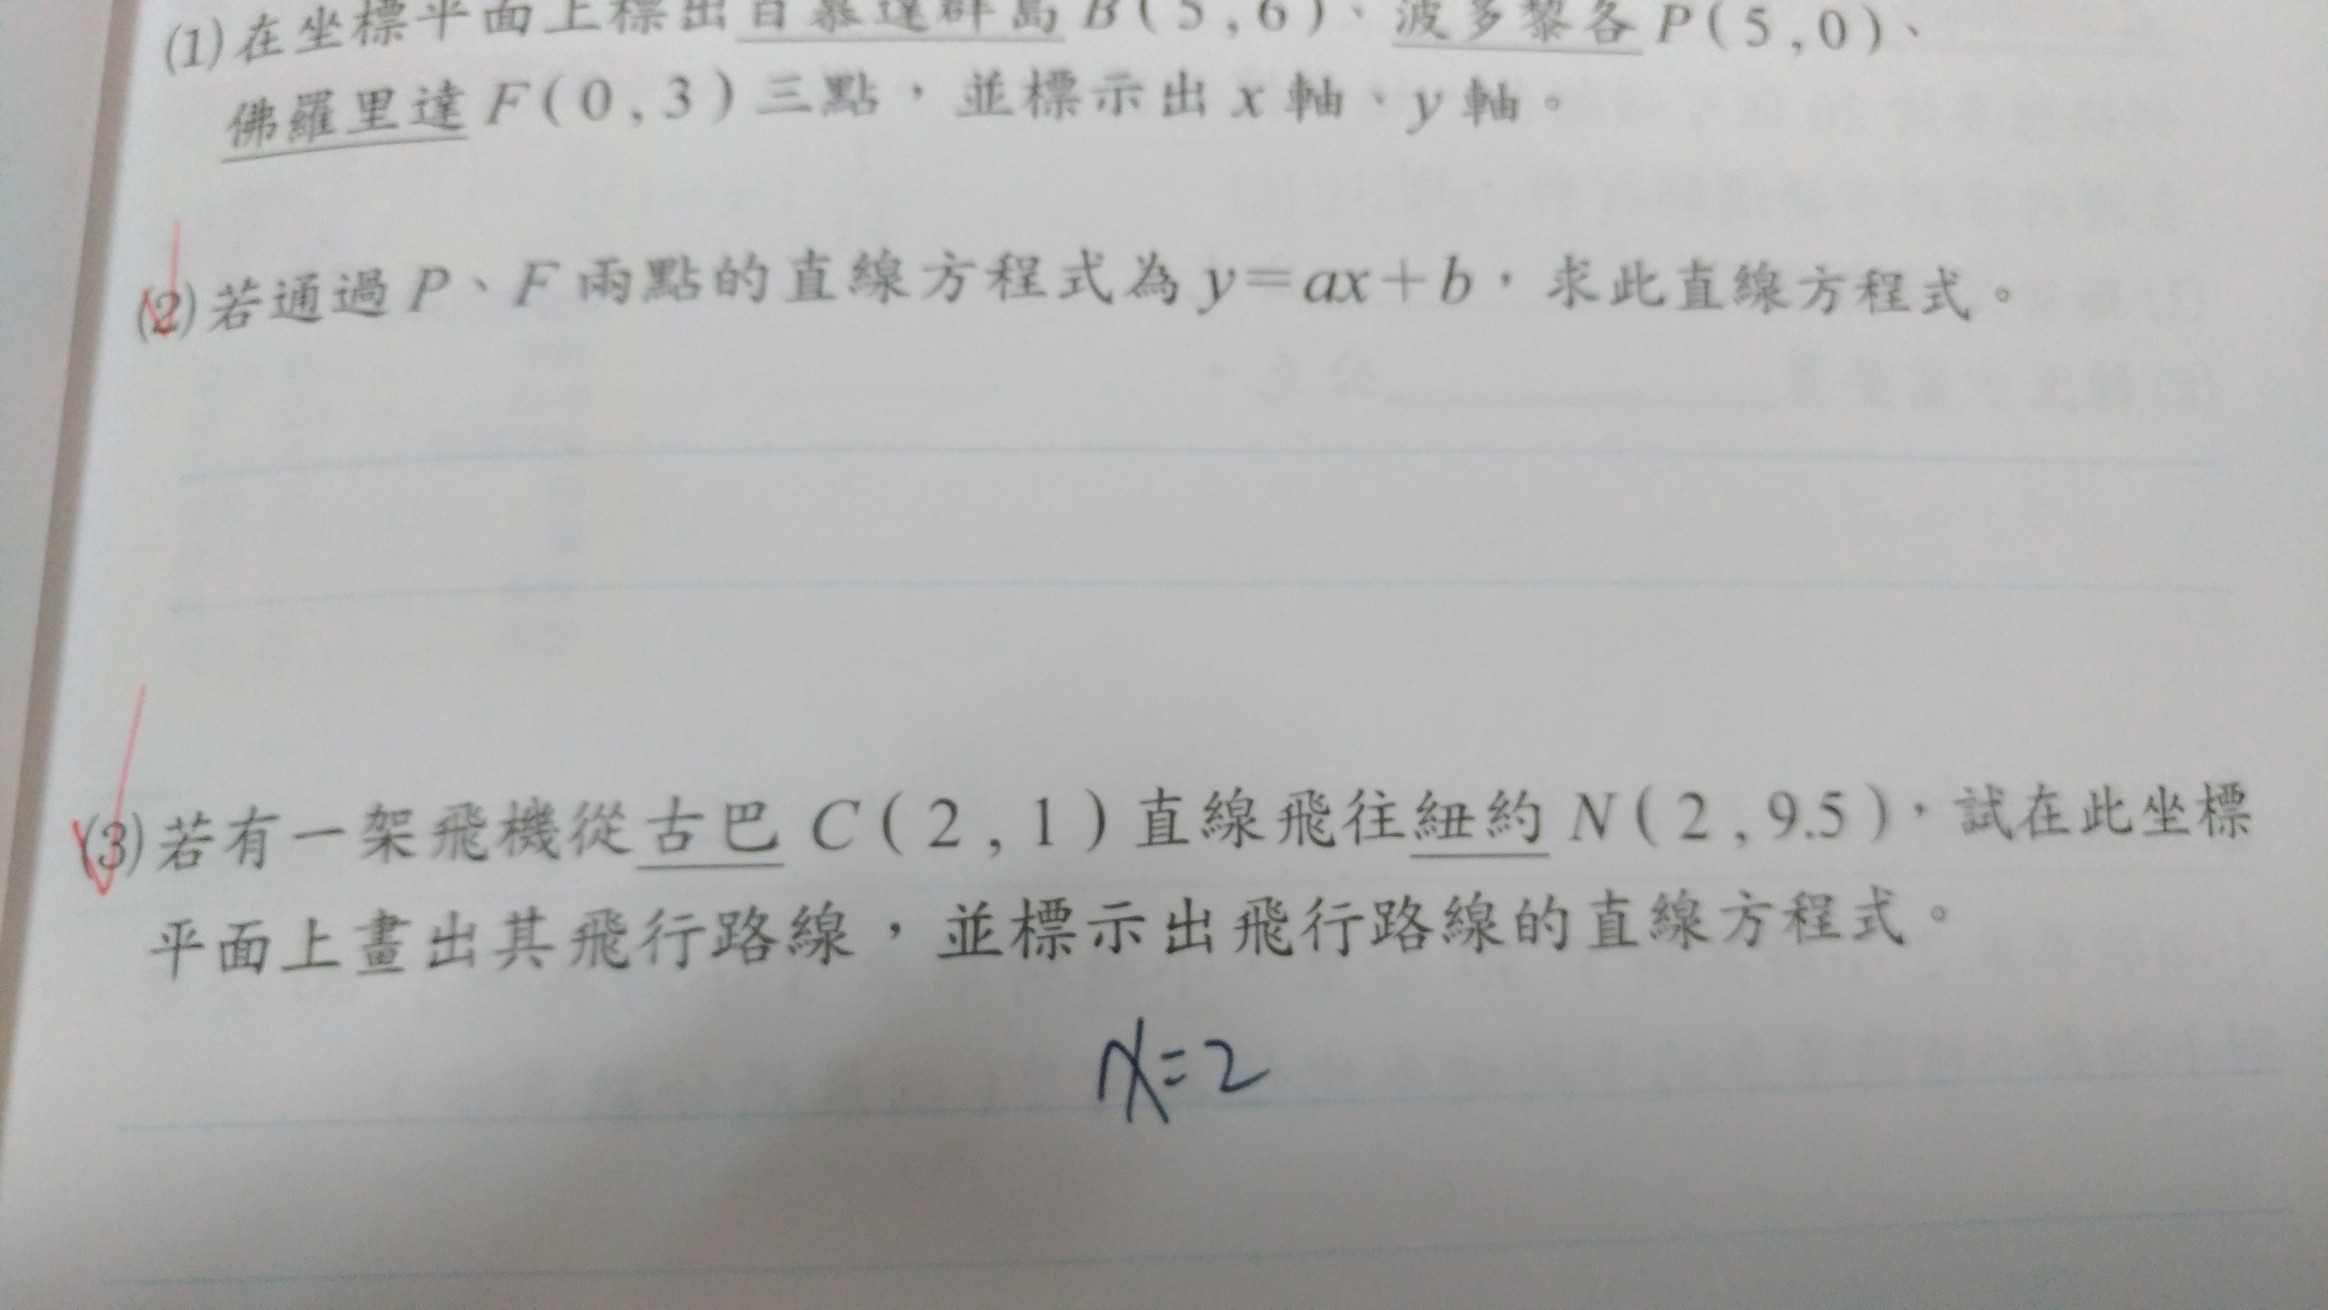 (1)在坐標平面上標出百慕達群島 B(5,6)、波多黎各 P(5,0)、
佛羅里達 F(0,3)三點,並標示出 x 軸、y 軸。
(2)若通過 P、F 兩點的直線方程式為 y=ax+b,求此直線方程式。
(3)若有一架飛機從古巴 C(2,1)直線飛往紐約 N(2,9.5),試在此坐標
平面上畫出其飛行路線,並標示出飛行路線的直線方程式。
x=2